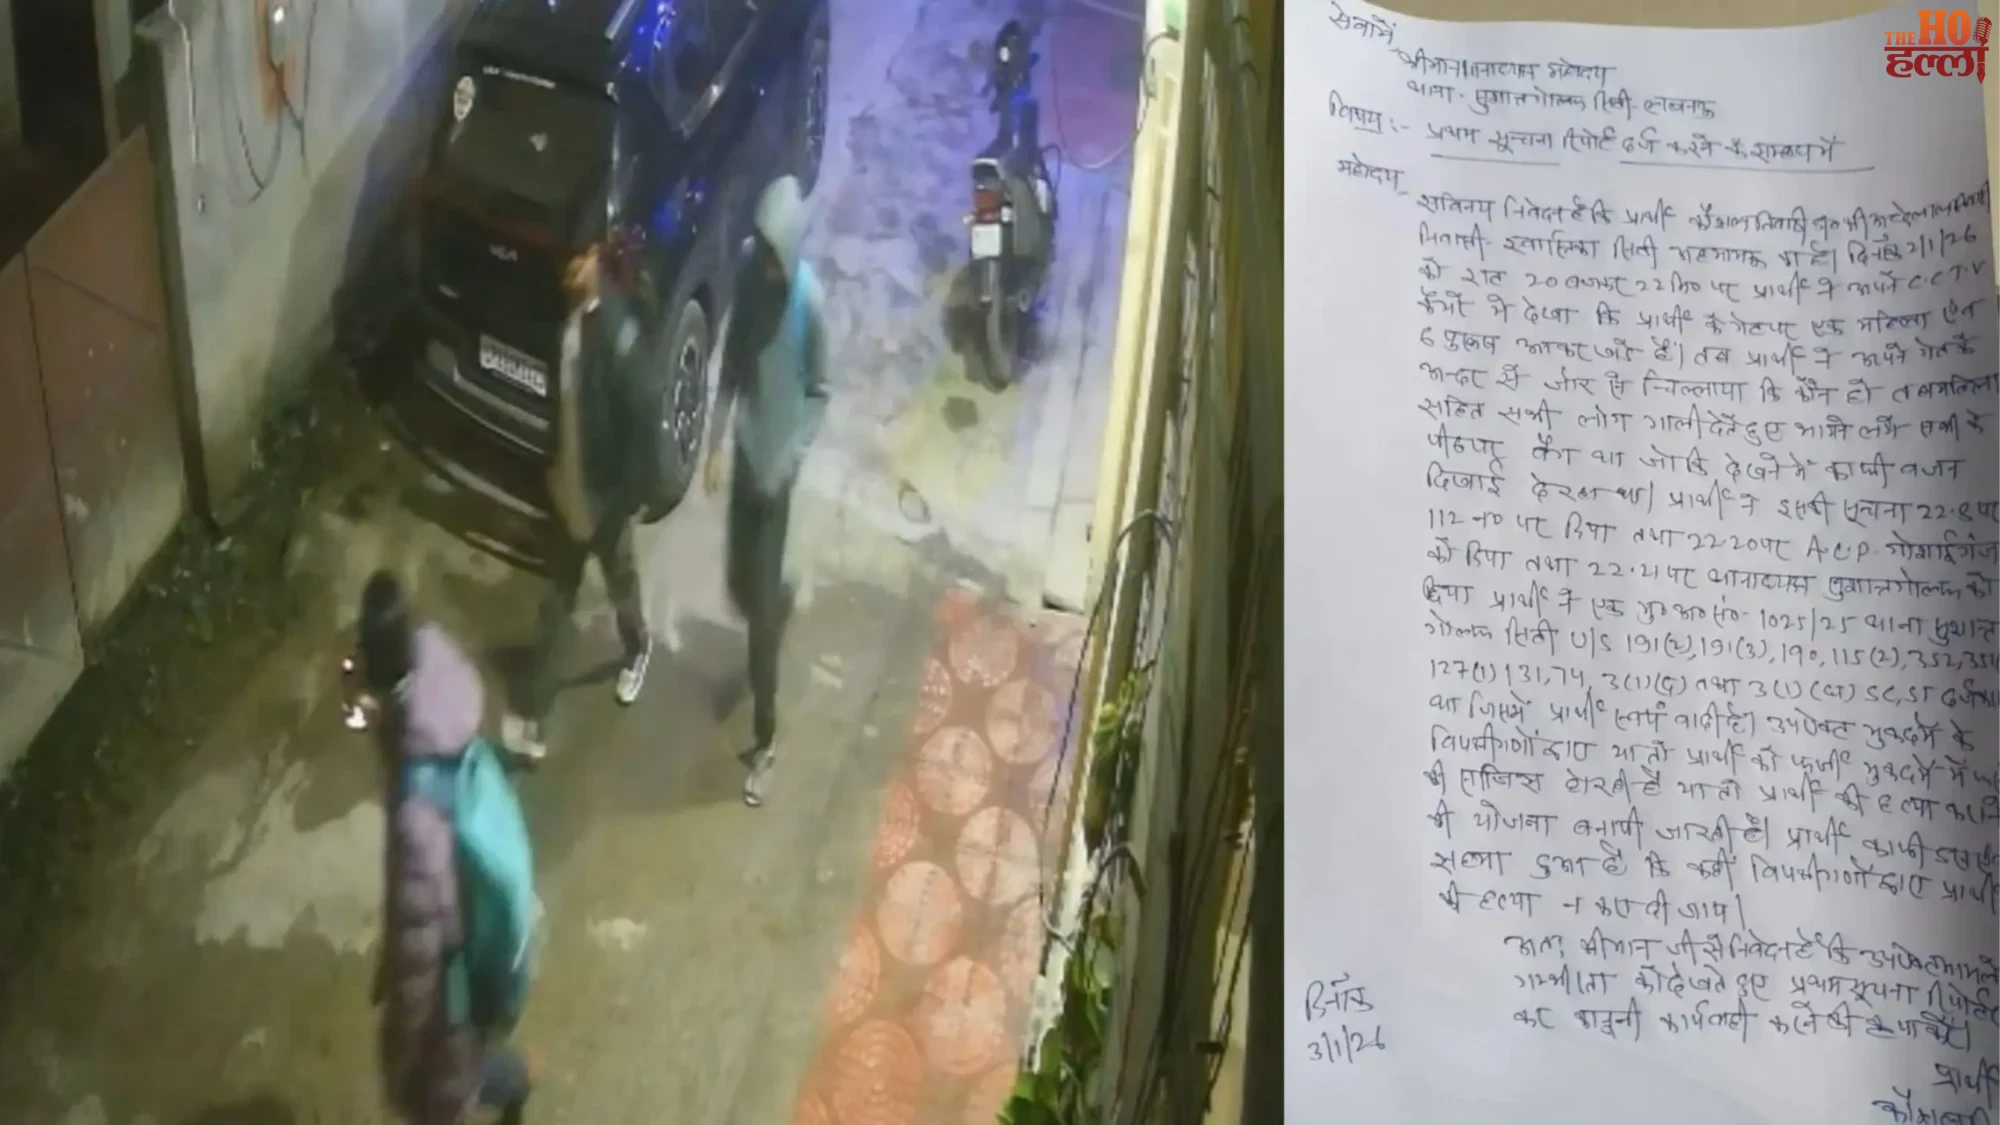 THE HO
हल्ला
सेवा में
श्रीमान थानाध्यक्ष महोदय
थाना - सुशान्त गोल्फ सिटी - लखनऊ
विषय :- प्रथम सूचना रिपोर्ट दर्ज करने के सम्बन्ध में
महोदय
सविनय निवेदन है कि प्रार्थी कौशल तिवारी
निवासी - स्वास्तिका सिटी का है। दिनांक 2/1/26
को रात 20 बजकर 22 मि० पर प्रार्थी ने अपने C.C.T.V
कैमरे में देखा कि प्रार्थी के गेट पर एक महिला एवं
6 पुरूष आकर खड़े हैं। तब प्रार्थी ने अपने गेट के
अन्दर से जोर से चिल्लाया कि कौन हो तब महिला
सहित सभी लोग गाली देते हुए भागने लगे सभी के
पीठ पर बैग था जो कि देखने में काफी वजन
दिखाई दे रहा था। प्रार्थी ने इसकी सूचना 22.8 पर
112 न० पर दिया तथा 22.20 पर A.C.P. गोसाईगंज
को दिया तथा 22.21 पर थानाध्यक्ष सुशान्त गोल्फ को
दिया प्रार्थी ने एक मु० अ० सं०- 1025/25 थाना सुशान्त
गोल्फ सिटी U/S 191(2), 191(3), 190, 115(2), 352, 351
127(1) 131, 74, 3(1)(द) तथा 3(1)(ध) SC, ST दर्ज
था जिसमें प्रार्थी स्वयं वादी है। उपरोक्त मुकदमें के
विपक्षीगणों द्वारा या तो प्रार्थी को फर्जी मुकदमें में
की साजिस हो रही है या तो प्रार्थी की हत्या करने
की योजना बनायी जा रही है। प्रार्थी काफी डरा
सहमा हुआ है कि कहीं विपक्षीगणों द्वारा प्रार्थी
की हत्या न कर दी जाय।
अतः श्रीमान जी से निवेदन है कि उपरोक्त मामले
गम्भीरता को देखते हुए प्रथम सूचना रिपोर्ट
कर कानूनी कार्यवाही करने की कृपा करें।
दिनाँक
3/1/26
प्रार्थी